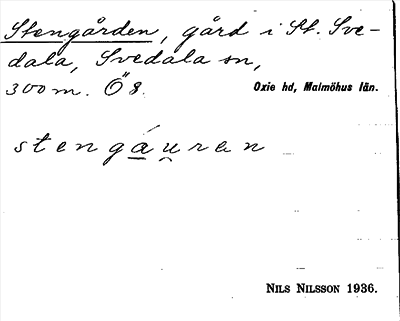 Stengården, gård i St. Sve-
dala, Svedala sn,
300 m. Ö 8.
Oxie hd, Malmöhus län.
stengáu̯ren
NILS NILSSON 1936.